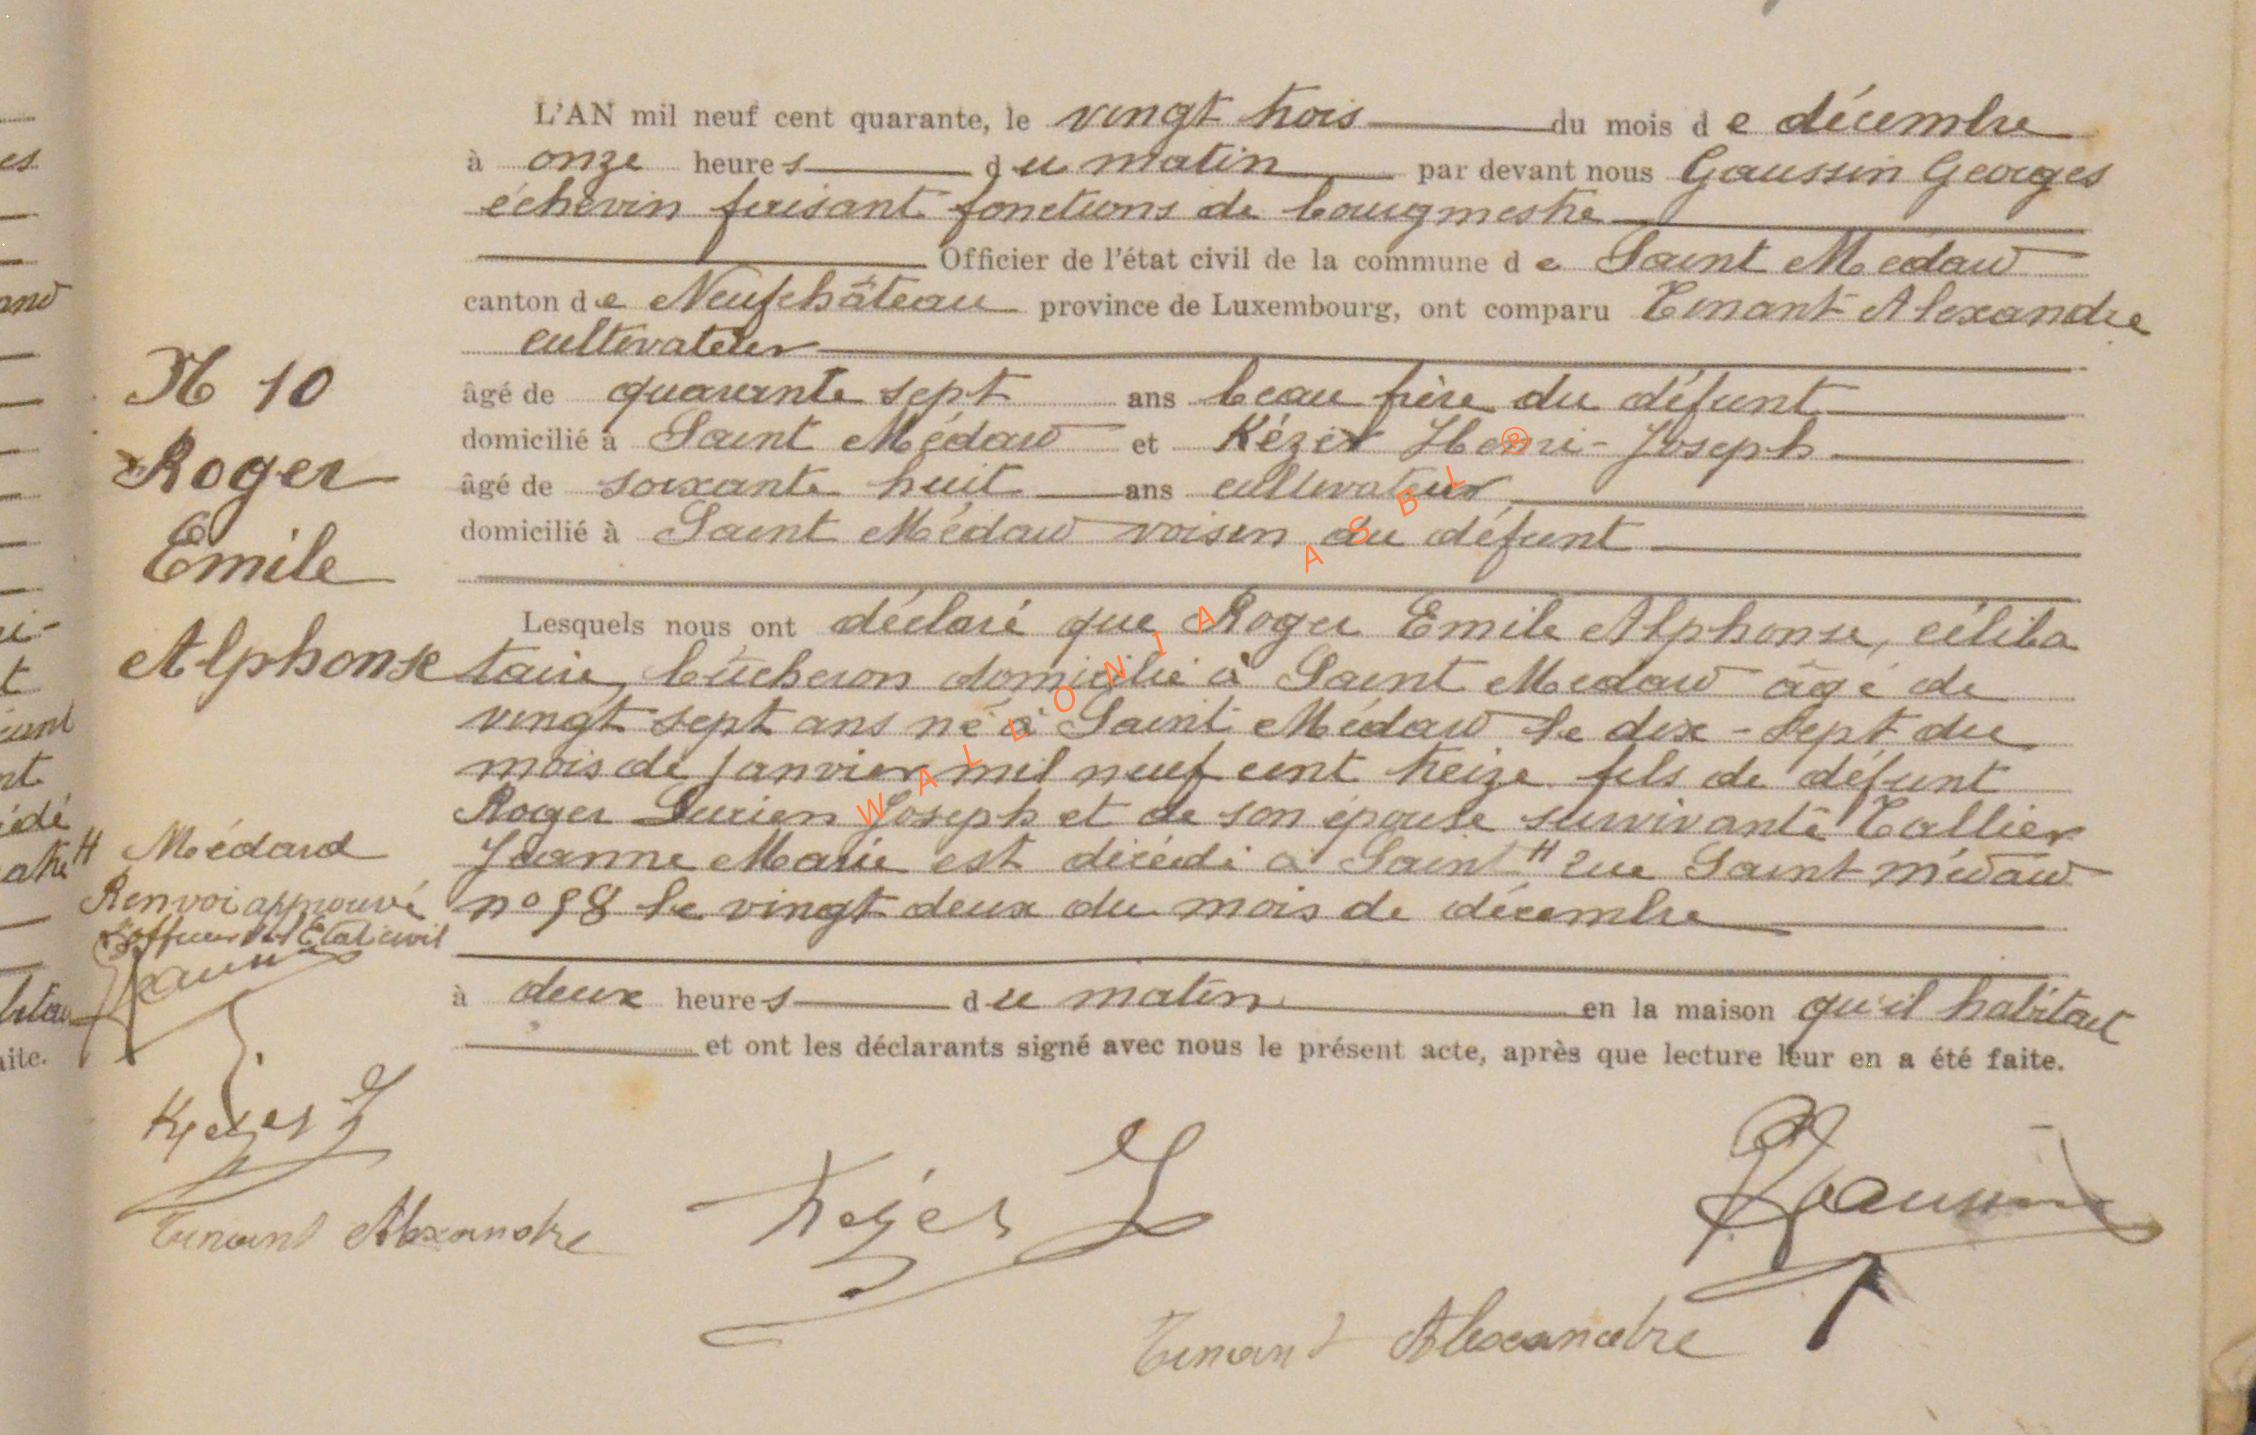 L'AN mil neuf cent quarante, le vingt trois du mois de décembre
à onze heures du matin par devant nous Gaussin Georges
échevin faisant fonctions de bourgmestre
Officier de l'état civil de la commune de Saint Médard
canton de Neufchâteau province de Luxembourg, ont comparu Tinant Alexandre
cultivateur
âgé de quarante sept ans beau frère du défunt
domicilié à Saint Médard et Kézer Henri-Joseph
âgé de soixante huit ans cultivateur
domicilié à Saint Médard voisin du défunt
N 10
Roger
Emile
Alphonse
Lesquels nous ont déclaré que Roger Emile Alphonse, céliba
taire, bûcheron domicilié à Saint Médard âgé de
vingt sept ans né à Saint Médard le dix-sept du
mois de Janvier mil neuf cent treize fils de défunt
Roger Lucien Joseph et de son épouse survivante Tallier
Jeanne Marie est décédé à Saint H rue Saint médard
n° 98 le vingt deux du mois de décembre
à deux heures du matin en la maison qu'il habitait
et ont les déclarants signé avec nous le présent acte, après que lecture leur en a été faite.
H Médard
Renvoi approuvé
L'officier de l'Etat civil
Gaussin
Kézer J
Tinant Alexandre
Kézer J
Gaussin
Tinant Alexandre
WALLONIA ASBL ®